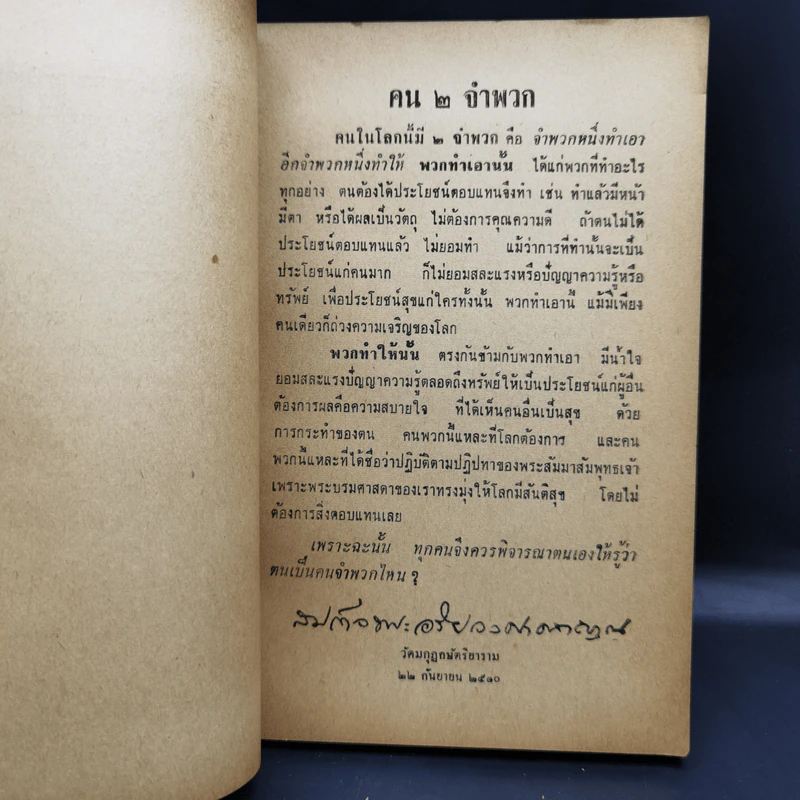 คน ๒ จำพวก
คนในโลกนี้มี ๒ จำพวก คือ จำพวกหนึ่งทำเอา
อีกจำพวกหนึ่งทำให้ พวกทำเอานั้น ได้แก่พวกที่ทำอะไร
ทุกอย่าง ตนต้องได้ประโยชน์ตอบแทนจึงทำ เช่น ทำแล้วมีหน้า
มีตา หรือได้ผลเป็นวัตถุ ไม่ต้องการคุณความดี ถ้าตนไม่ได้
ประโยชน์ตอบแทนแล้ว ไม่ยอมทำ แม้ว่าการที่ทำนั้นจะเป็น
ประโยชน์แก่คนมาก ก็ไม่ยอมสละแรงหรือปัญญาความรู้หรือ
ทรัพย์ เพื่อประโยชน์สุขแก่ใครทั้งนั้น พวกทำเอานี้ แม้มีเพียง
คนเดียวก็ถ่วงความเจริญของโลก
พวกทำให้นั้น ตรงกันข้ามกับพวกทำเอา มีน้ำใจ
ยอมสละแรงปัญญาความรู้ตลอดถึงทรัพย์ให้เป็นประโยชน์แก่ผู้อื่น
ต้องการผลคือความสบายใจ ที่ได้เห็นคนอื่นเป็นสุข ด้วย
การกระทำของตน คนพวกนี้แหละที่โลกต้องการ และคน
พวกนี้แหละที่ได้ชื่อว่าปฏิบัติตามปฏิปทาของพระสัมมาสัมพุทธเจ้า
เพราะพระบรมศาสดาของเราทรงมุ่งให้โลกมีสันติสุข โดยไม่
ต้องการสิ่งตอบแทนเลย
เพราะฉะนั้น ทุกคนจึงควรพิจารณาตนเองให้รู้ว่า
ตนเป็นคนจำพวกไหน ?
สมเด็จพระอริยวงศาคตญาณ
วัดมกุฏกษัตริยาราม
๒๒ กันยายน ๒๕๑๐